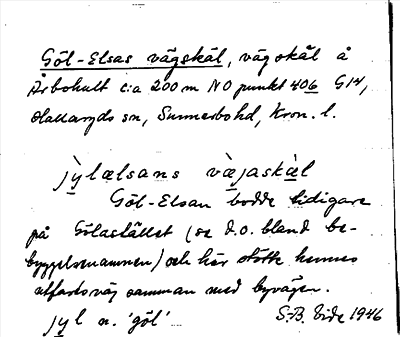 Göl-Elsas vägskäl, vägskäl å
Årbohult c:a 200 m NO punkt 406 G14,
Hallaryds sn, Sunnerbo hd, Kron. l.
jỳlælsans væ̀jaskæ̀l
Göl-Elsan bodde tidigare
på Gölastället (se d.o. bland be-
byggelsenamnen) och här stötte hennes
utfartsväg samman med byvägen.
jyl n. 'göl'
S-B. Vide 1946